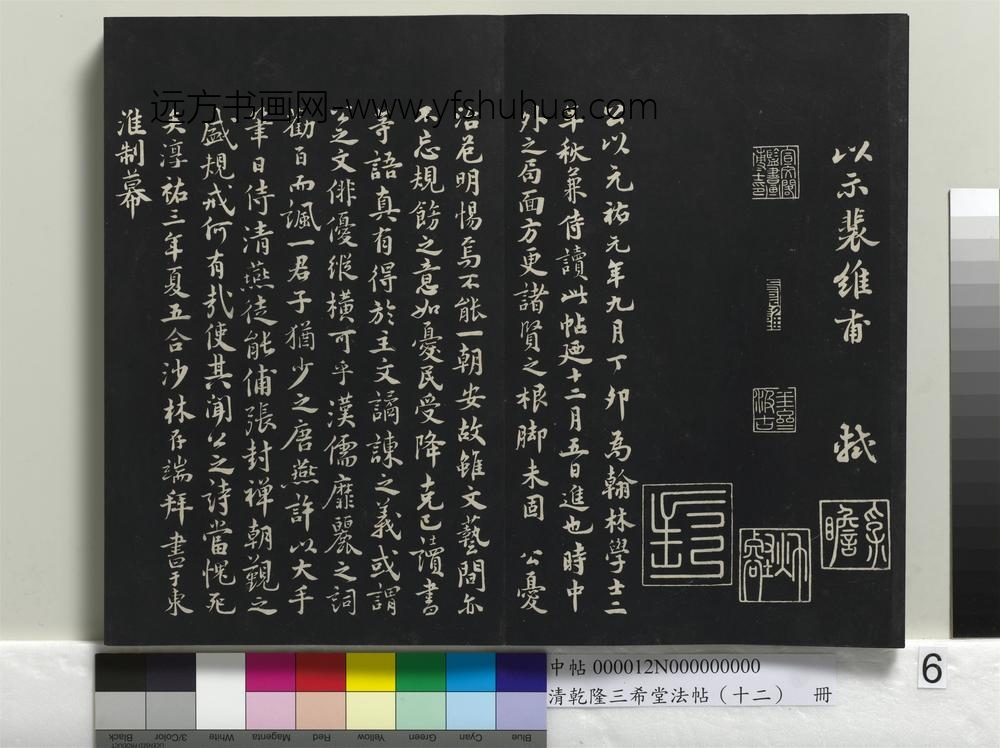 以示裴維甫 軾
公以元祐元年九月丁卯為翰林學士二
年秋兼侍讀此帖廼十二月五日進也時中
外之局面方更諸賢之根脚未固 公憂
治危明惕焉不能一朝安故雖文藝間亦
不忘規飭之意如憂民受降克己讀書
等語真有得於主文譎諫之義或謂
公之文俳優縱橫可乎漢儒靡麗之詞
勸百而諷一君子猶少之唐燕許以大手
筆日侍清燕徒能備張封禪朝覲之
盛規戒何有哉使其聞公之詩當愧死
矣淳祐三年夏五合沙林存端拜書于東
淮制幕
远方书画网-www.yfshuhua.com
中帖 000012N000000000
清乾隆三希堂法帖（十二） 冊
6
Black
3/Color
White
Magenta
Red
Yellow
Green
Cyan
Blue